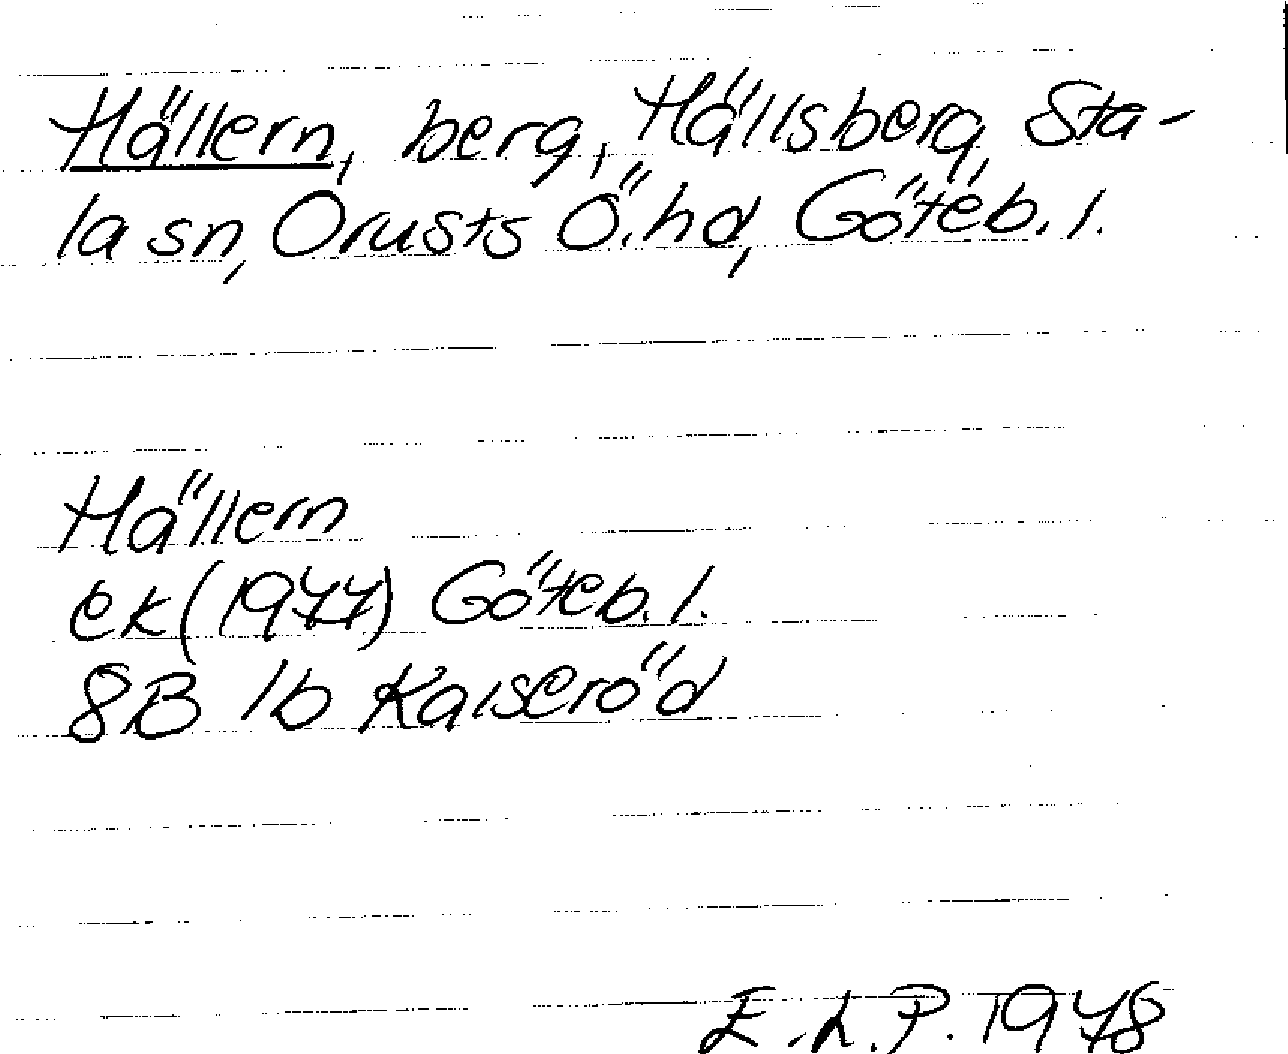 Hällern, berg, Hällsberg, Sta-
la sn, Orusts Ö.hd, Göteb. l.
Hällern
ek (1977) Göteb. l.
8B 1b Kaiseröd
E.L.P. 1978